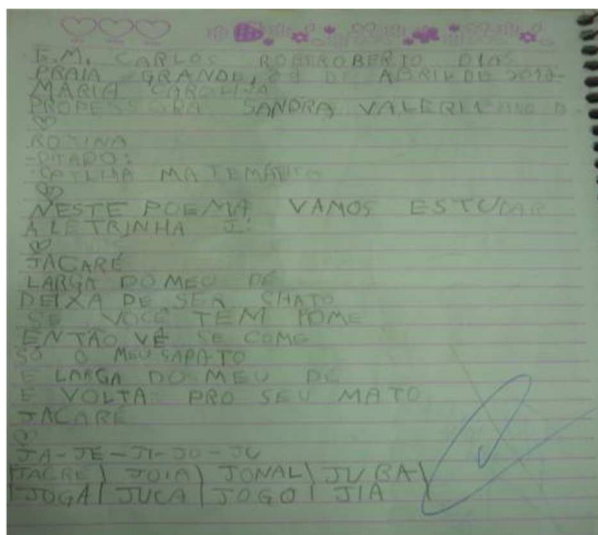 E.M. CARLOS ROBEROBERTO DIAS
PRAIA GRANDE, DE ABRIL DE 2012
MARIA CAROLINA
PROFESSORA SANDRA
ROTINA
-DITADO:
MATEMÁTICO
NESTE POEMA VAMOS ESTUDAR
A LETRINHA J:
JACARÉ
LARGA DO MEU PÉ
DEIXA DE SER CHATO
SE VOCÊ TEM FOME
ENTÃO VÊ SE COME
SÓ O MEU SAPATO
E LARGA DO MEU PÉ
E VOLTA PRO SEU MATO
JACARÉ
JA-JE-JI-JO-JU
JACRÉ | JOIA | JONAL | JUBA |
| JOGA | JUCA | JOGO | JIA